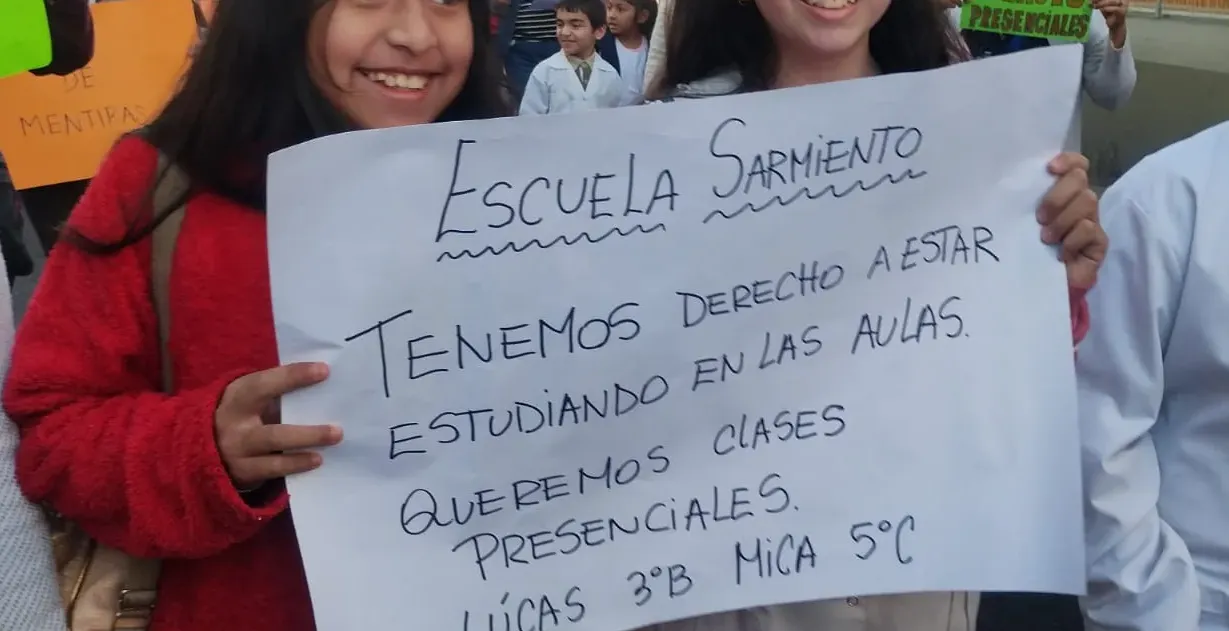 DE
MENTIRAS
PRESENCIALES
ESCUELA SARMIENTO
TENEMOS DERECHO A ESTAR
ESTUDIANDO EN LAS AULAS.
QUEREMOS CLASES
PRESENCIALES.
LÚCAS 3°B MICA 5°C